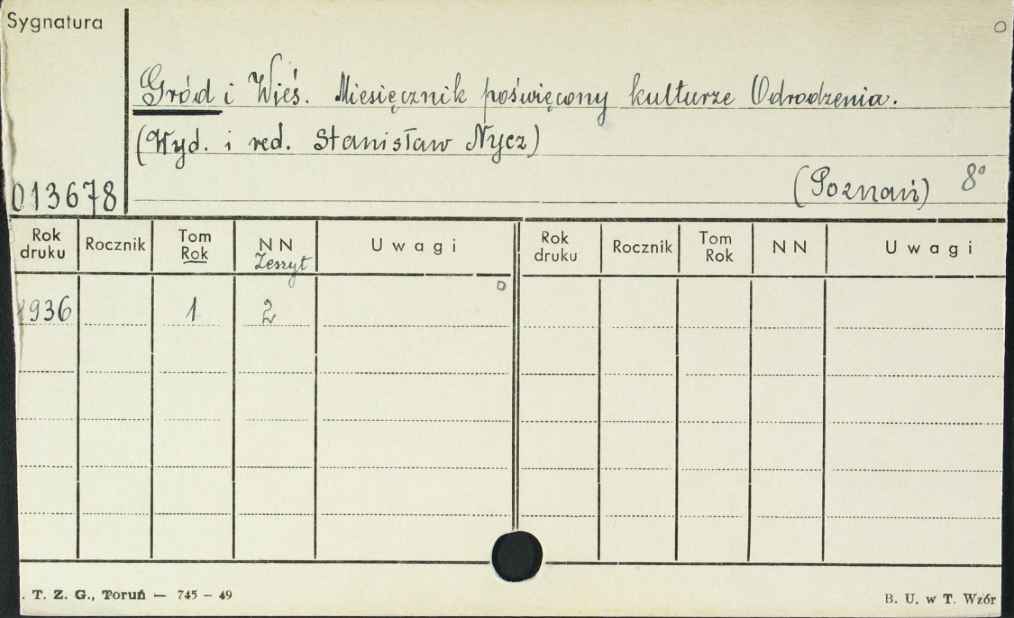 Sygnatura
Gród i Wieś. Miesięcznik poświęcony kulturze Odrodzenia.
(Wyd. i red. Stanisław Nycz)
(Poznań) 8°
013678
Rok druku Rocznik Tom Rok NN Zeszyt Uwagi Rok druku Rocznik Tom Rok NN Uwagi
1936 1 2
. T. Z. G., Toruń — 745 – 49
B. U. w T. Wzór